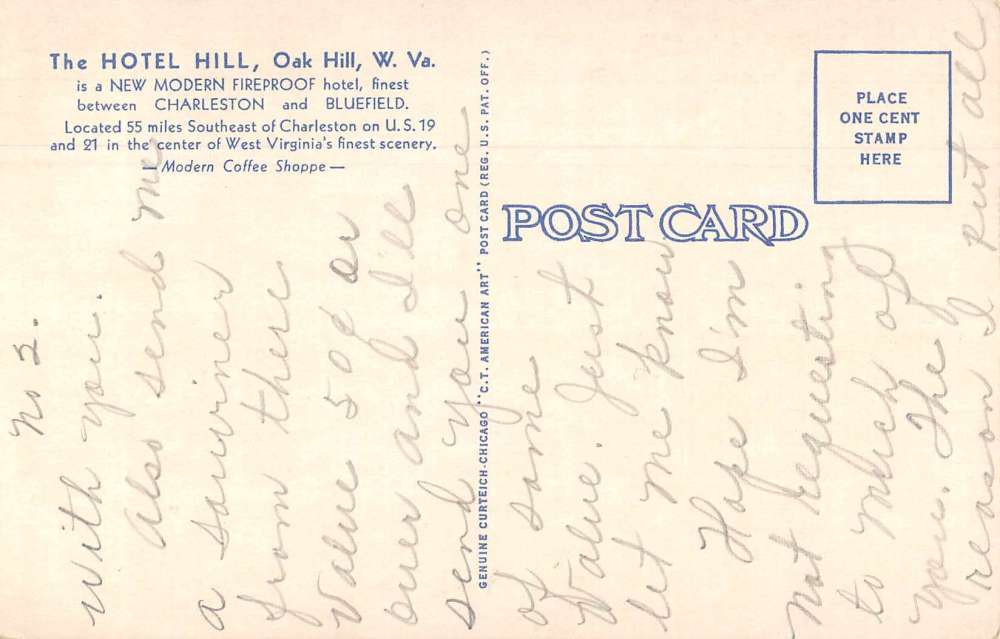 The HOTEL HILL, Oak Hill, W. Va.
is a NEW MODERN FIREPROOF hotel, finest
between CHARLESTON and BLUEFIELD.
Located 55 miles Southeast of Charleston on U.S. 19
and 21 in the center of West Virginia's finest scenery.
— Modern Coffee Shoppe —
GENUINE CURTEICH-CHICAGO "C.T. AMERICAN ART" POST CARD (REG. U.S. PAT. OFF.)
POST CARD
PLACE
ONE CENT
STAMP
HERE
No 2.
with you.
Also send me
a souviner
from there
Value 50¢ or
over and I'll
send you one
of same
Value. Just
let me know
Hope I'm
not requesting
to much of
you. The
reason I put all